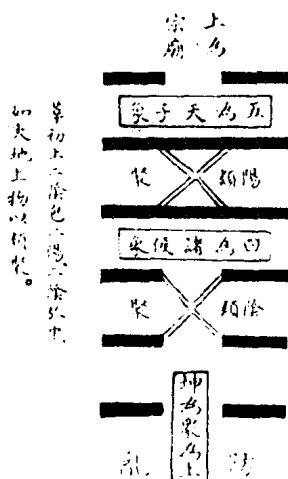 上為
宗廟
五為天子象
陽類聚
四為諸侯象
陰類聚
坤為衆為土
亂
萃初上二陰包二陽二陰於中
如天地上物以類聚。